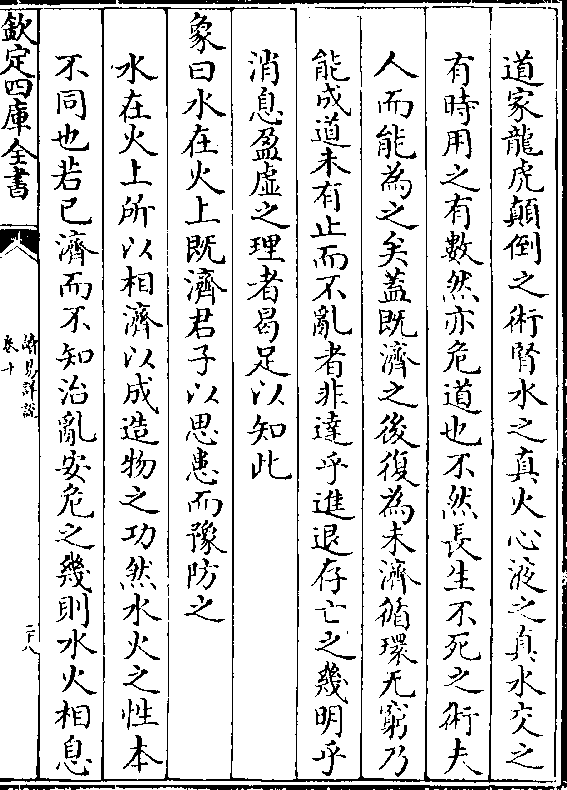 道家龍虎顛倒之術腎水之真火心液之真水交之
有時用之有數然亦危道也不然長生不死之術夫
人而能為之矣蓋既濟之後復為未濟循環无窮乃
能成道未有止而不亂者非達乎進退存亡之幾明乎
消息盈虛之理者曷足以知此
象曰水在火上既濟君子以思患而豫防之
水在火上所以相濟以成造物之功然水火之性本
不同也若已濟而不知治亂安危之幾則水火相息
欽定四庫全書
讀易詳說
卷十
二十八